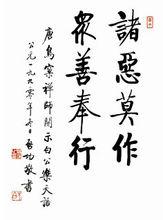 諸惡莫作
衆善奉行
唐鳥窠禪師開示白公樂天語
公元一九九零年冬日啟功敬書